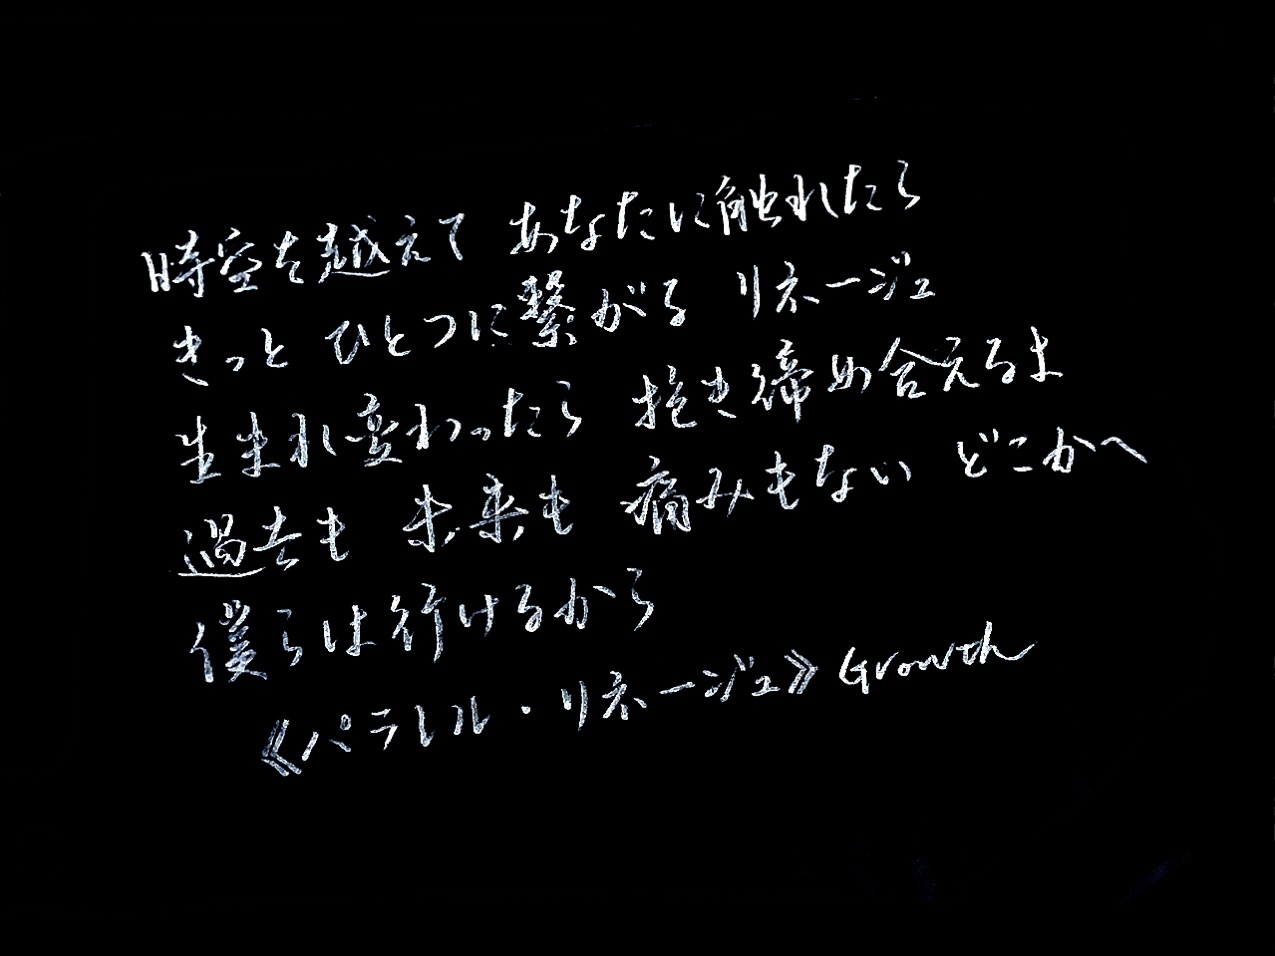 時空を越えて あなたに触れたら
きっと ひとつに繋がる リネージュ
生まれ変わったら 抱き締め合えるよ
過去も 未来も 痛みもない どこかへ
僕らは行けるから
《パラレル・リネージュ》Growth